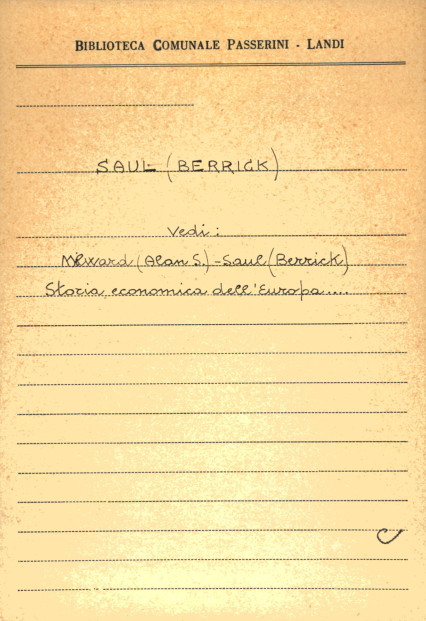 BIBLIOTECA COMUNALE PASSERINI - LANDI
SAUL (BERRICK)
Vedi:
Milward (Alan S.) - Saul (Berrick)
Storia economica dell'Europa....